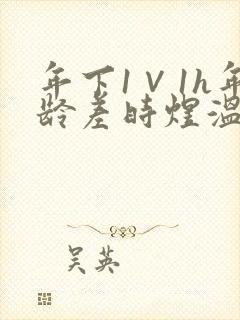 年下1V1h年
龄差时煜温
吴英